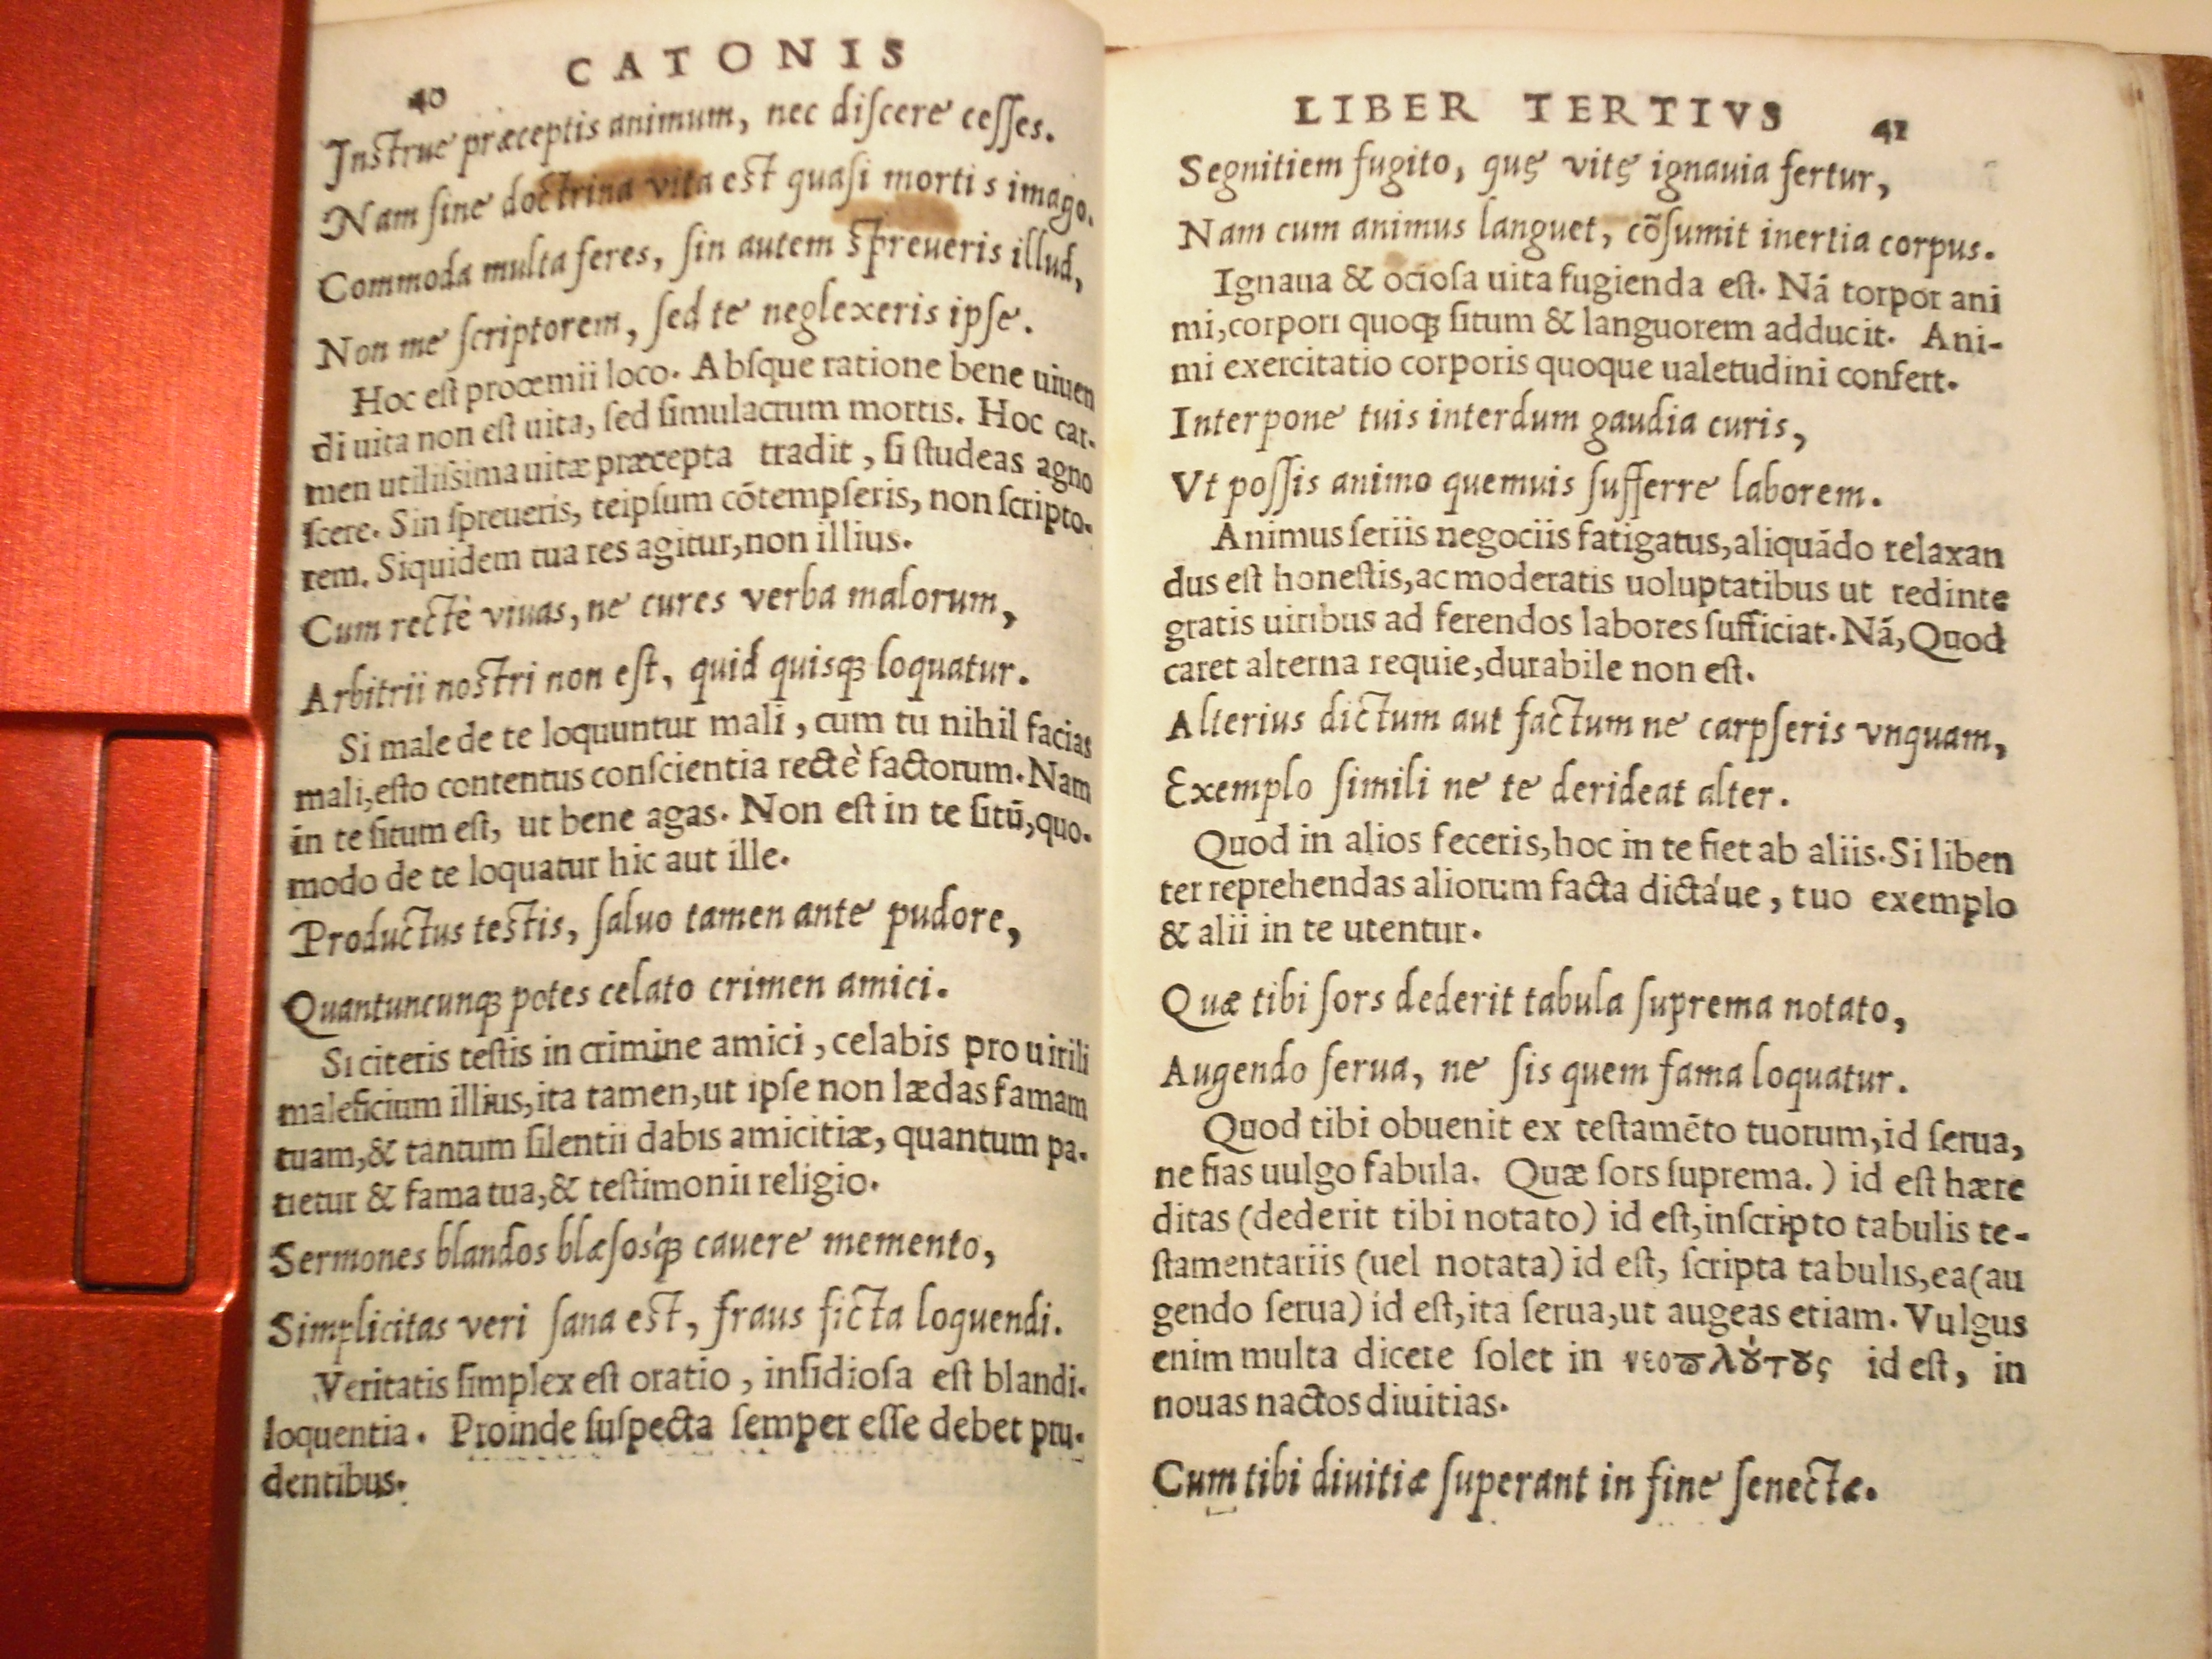 40 CATONIS
Instrue præceptis animum, nec diſcere ceſſes.
Nam ſine doctrina vita est quaſi morti s imago.
Commoda multa feres, ſin autem ſpreueris illud,
Non me ſcriptorem, ſed te neglexeris ipſe.
Hoc eſt procemii loco. Abſque ratione bene uiuen
di uita non eſt uita, ſed ſimulacrum mortis. Hoc car-
men utiliſsima uitæ præcepta tradit, ſi ſtudeas agno
ſcere. Sin ſpreueris, teipſum cōtempſeris, non ſcripto-
rem. Siquidem tua res agitur, non illius.
Cum rectè viuas, ne cures verba malorum,
Arbitrii nostri non eſt, quid quisqꝫ loquatur.
Si male de te loquuntur mali, cum tu nihil facias
mali, eſto contentus conſcientia rectè factorum. Nam
in te ſitum eſt, ut bene agas. Non eſt in te ſitū, quo-
modo de te loquatur hic aut ille.
Productus testis, ſaluo tamen ante pudore,
Quantuncunqꝫ potes celato crimen amici.
Si citeris teſtis in crimine amici, celabis pro uirili
maleficium illius, ita tamen, ut ipſe non lædas famam
tuam, & tantum ſilentii dabis amicitiæ, quantum pa-
tietur & fama tua, & teſtimonii religio.
Sermones blandos blæſosq́ꝫ cauere memento,
Simplicitas veri ſana est, fraus ficta loquendi.
Veritatis ſimplex eſt oratio, inſidioſa eſt blandi-
loquentia. Proinde ſuſpecta ſemper eſſe debet pru-
dentibus.
LIBER TERTIVS 41
Segnitiem fugito, quę vitę ignauia fertur,
Nam cum animus languet, cōſumit inertia corpus.
Ignaua & ocioſa uita fugienda eſt. Nā torpor ani
mi, corpori quoqꝫ ſitum & languorem adducit. Ani-
mi exercitatio corporis quoque ualetudini confert.
Interpone tuis interdum gaudia curis,
Vt poſſis animo quemuis ſufferre laborem.
Animus ſeriis negociis fatigatus, aliquādo relaxan
dus eſt honeſtis, ac moderatis uoluptatibus ut redinte
gratis uiribus ad ferendos labores ſufficiat. Nā, Quod
caret alterna requie, durabile non eſt.
Alterius dictum aut factum ne carpſeris vnquam,
Exemplo ſimili ne te derideat alter.
Quod in alios feceris, hoc in te fiet ab aliis. Si liben
ter reprehendas aliorum facta dictáue, tuo exemplo
& alii in te utentur.
Quæ tibi ſors dederit tabula ſuprema notato,
Augendo ſerua, ne ſis quem fama loquatur.
Quod tibi obuenit ex teſtamēto tuorum, id ſerua,
ne fias uulgo fabula. Quæ ſors ſuprema.) id eſt hære
ditas (dederit tibi notato) id eſt, inſcripto tabulis te-
ſtamentariis (uel notata) id eſt, ſcripta tabulis, ea (au
gendo ſerua) id eſt, ita ſerua, ut augeas etiam. Vulgus
enim multa dicere ſolet in νεοϖλȣ́τȣς id eſt, in
nouas nactos diuitias.
Cum tibi diuitiæ ſuperant in fine ſenectæ.